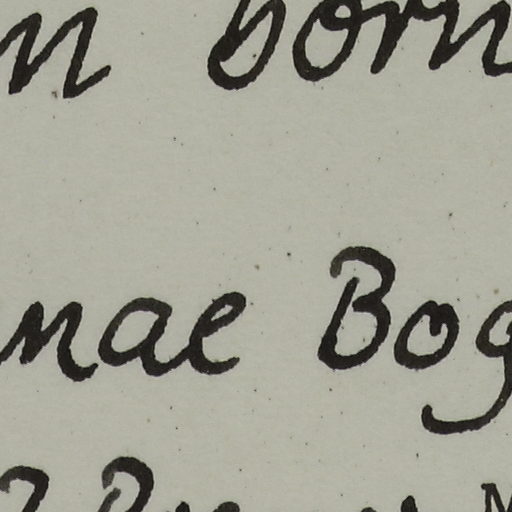 n born
nae Bog